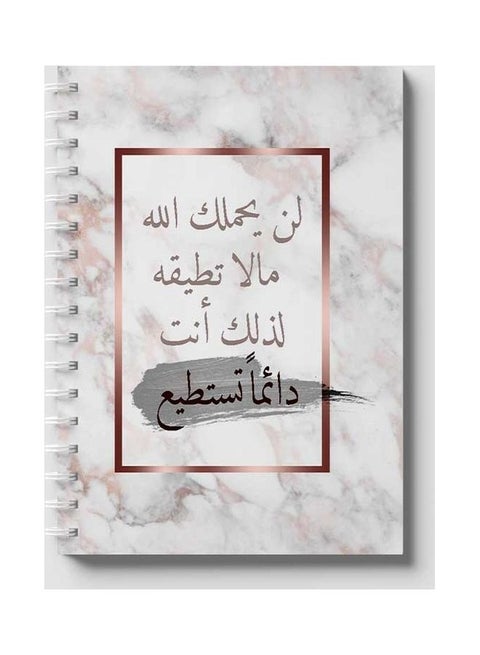 لن يحملك الله
مالا تطيقه
لذلك أنت
دائماً تستطيع